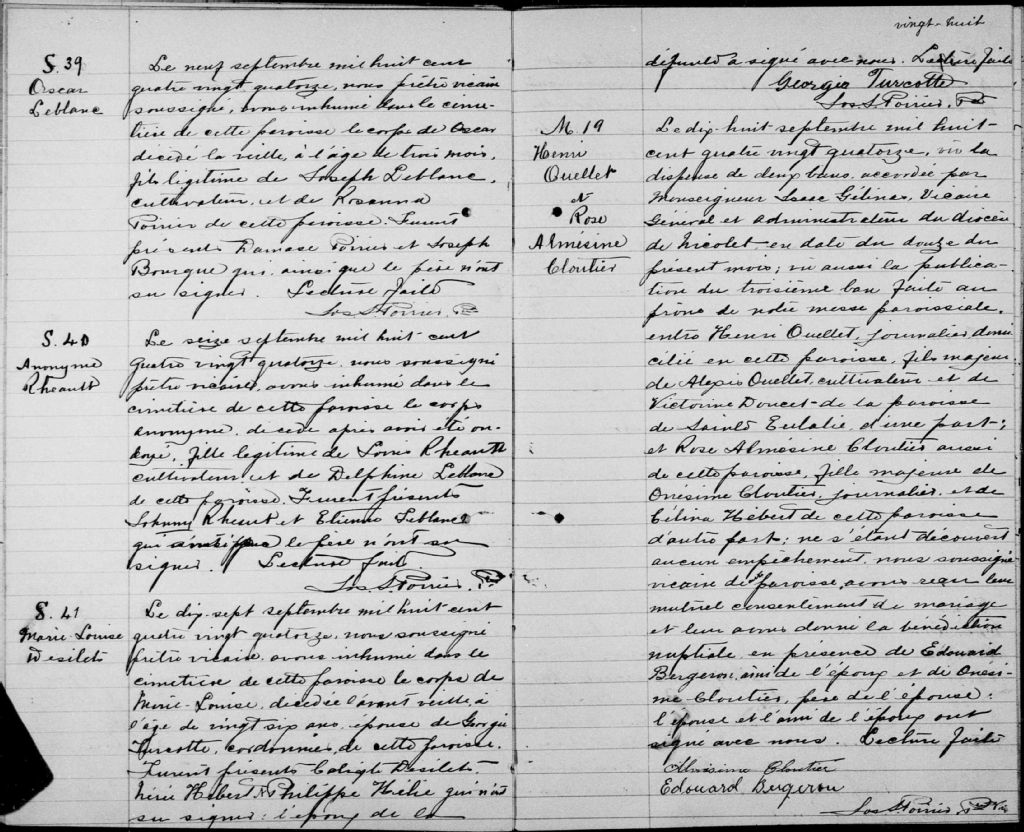 S. 39
Oscar
Leblanc
Le neuf septembre mil huit cent
quatre vingt quatorze, nous prêtre vicaire
soussigné, avons inhumé dans le cime-
tière de cette paroisse le corps de Oscar
décédé la veille, à l'âge de trois mois,
fils légitime de Joseph Leblanc,
cultivateur, et de Rosanna
Poirier de cette paroisse. Furent
présents Damase Poirier et Joseph
Bourque qui ainsi que le père n'ont
su signer. Lecture faite
Jos. S. Poirier, Ptre
S. 40
Anonyme
Rheault
Le seize septembre mil huit cent
quatre vingt quatorze, nous soussigné
prêtre vicaire, avons inhumé dans le
cimetière de cette paroisse le corps
anonyme, décédé après avoir été on-
doyé, fille légitime de Louis Rheault
cultivateur, et de Delphine Leblanc
de cette paroisse. Furent présents
Johnny Rheault et Etienne Leblanc
qui ainsi que le père n'ont su
signer. Lecture faite
Jos. S. Poirier, Ptre
S. 41
Marie-Louise
Desilets
Le dix-sept septembre mil huit cent
quatre vingt quatorze, nous soussigné
prêtre vicaire, avons inhumé dans le
cimetière de cette paroisse le corps de
Marie-Louise, décédée l'avant veille, à
l'âge de vingt six ans, épouse de Georgie
Turcotte, cordonnier, de cette paroisse.
Furent présents Calixte Desilets,
Hébert et Philippe Hélie qui n'ont
su signer; l'époux de la
vingt-huit
défunte a signé avec nous. Lecture faite
Georgie Turcotte
Jos. S. Poirier, Ptre
M. 19
Henri
Ouellet
et
Rose
Almésine
Cloutier
Le dix-huit septembre mil huit-
cent quatre vingt quatorze, vu la
dispense de deux bans, accordée par
Monseigneur Isaac Gélinas, Vicaire
Général et administrateur du diocèse
de Nicolet, en date du douze du
présent mois; vu aussi la publica-
tion du troisième ban faite au
prône de notre messe paroissiale,
entre Henri Ouellet, journalier, domi-
cilié en cette paroisse, fils majeur
de Alexis Ouellet, cultivateur, et de
Victorine Doucet de la paroisse
de Sainte Eulalie, d'une part;
et Rose Almésine Cloutier aussi
de cette paroisse, fille majeure de
Onésime Cloutier, journalier, et de
Célina Hébert de cette paroisse
d'autre part; ne s'étant découvert
aucun empêchement, nous soussigné
vicaire de paroisse, avons reçu leur
mutuel consentement de mariage
et leur avons donné la bénédiction
nuptiale en présence de Edouard
Bergeron, ami de l'époux et de Onési-
me Cloutier, père de l'épouse;
l'épouse et l'ami de l'époux ont
signé avec nous. Lecture faite
Almésine Cloutier
Edouard Bergeron
Jos. S. Poirier, Ptre Vic